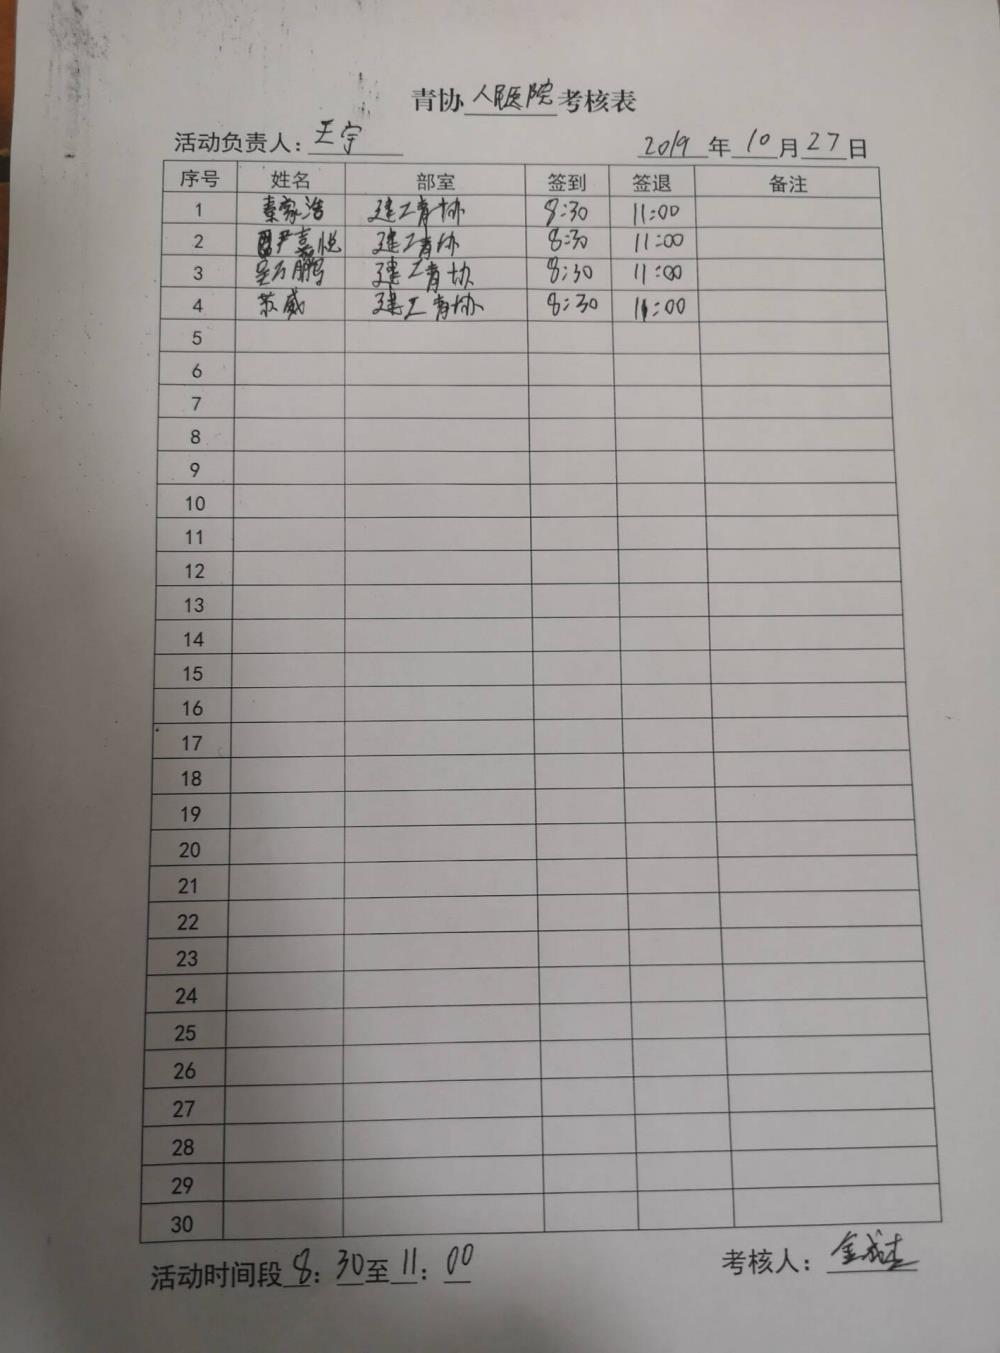 青协人民医院考核表
活动负责人：王宇 2019年10月27日
序号 姓名 部室 签到 签退 备注
1 秦家浩 建工青协 8:30 11:00
2 严嘉悦 建工青协 8:30 11:00
3 万鹏 建工青协 8:30 11:00
4 苏威 建工青协 8:30 11:00
5
6
7
8
9
10
11
12
13
14
15
16
17
18
19
20
21
22
23
24
25
26
27
28
29
30
活动时间段8:30至11:00 考核人：金成杰